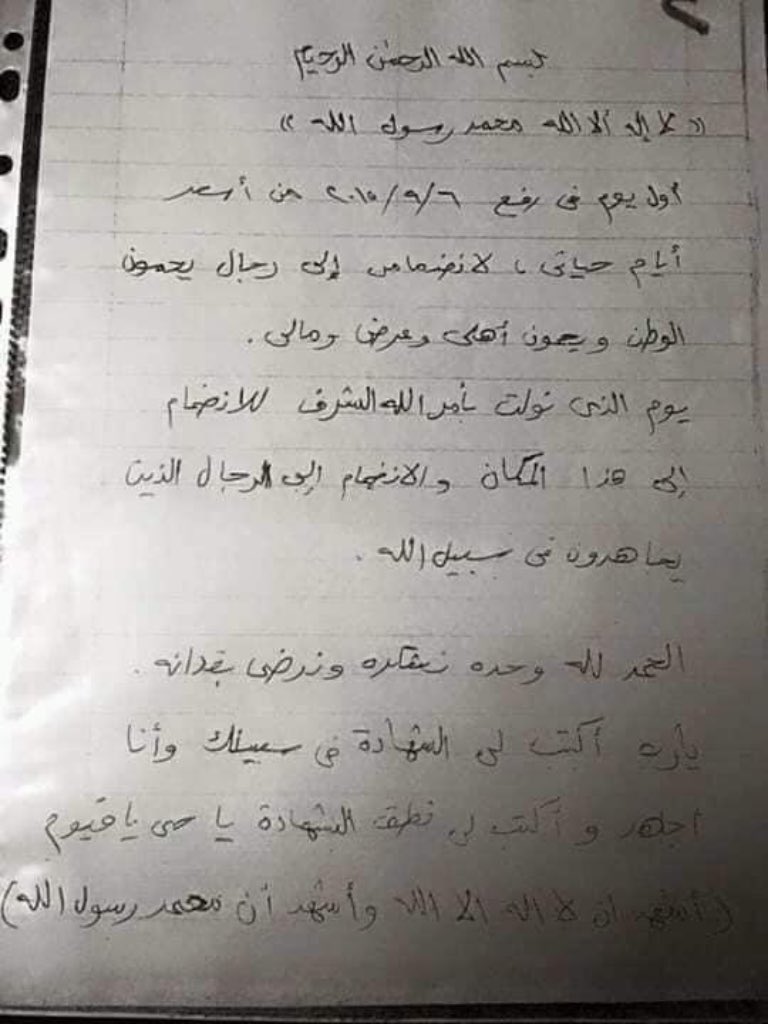 بسم الله الرحمن الرحيم
« لا إله ألا الله محمد رسول الله »
أول يوم فى رفح ٢٠١٥/٩/٦ من أسعد
أيام حياتى ، لانضمامى إلى رجال يحمون
الوطن ويحمون أهلى وعرضى ومالى .
يوم الذى نولت بأمر الله الشرف للانضمام
إلى هذا المكان والانضمام إلى الرجال الذين
يجاهدون فى سبيل الله .
الحمد لله وحده نشكره ونرضى بقدانه .
يارب أكتب لى الشهادة فى سبيلك وأنا
اجاهد و أكتب لى نطق الشهادة يا حى ياقيوم
( أشهد ان لا اله الا الله وأشهد أن محمد رسول الله )